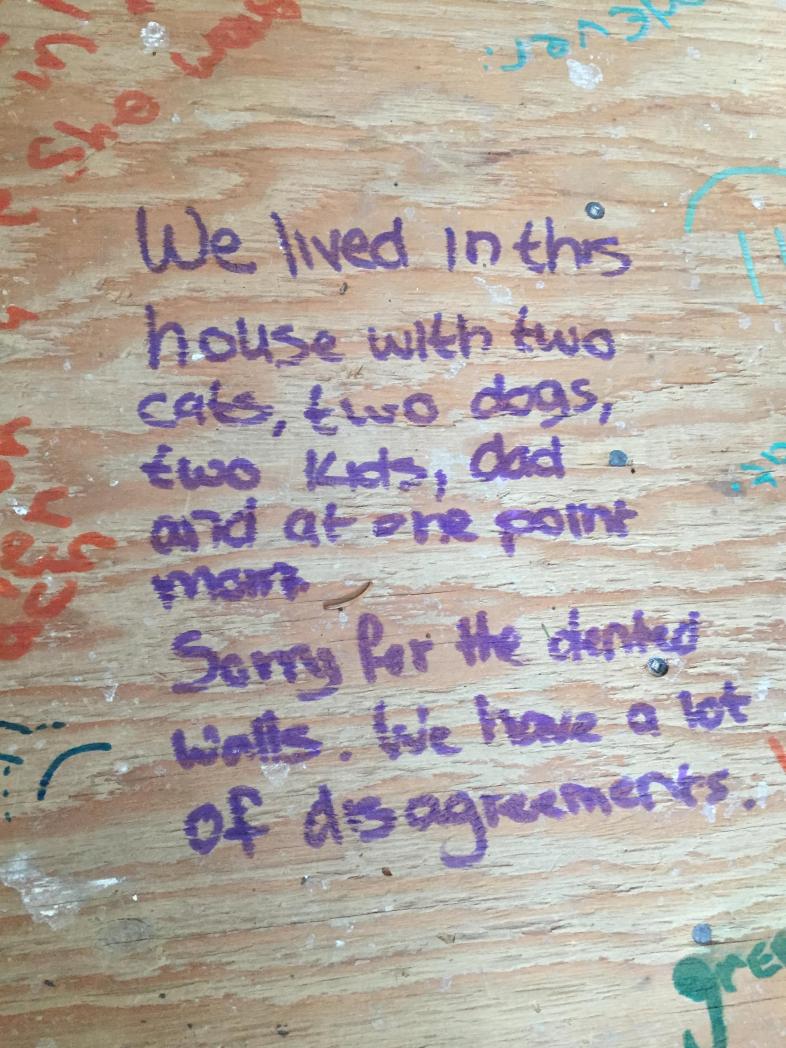 We lived in this
house with two
cats, two dogs,
two kids, dad
and at one point
mom
Sorry for the dented
walls. We have a lot
of disagreements.